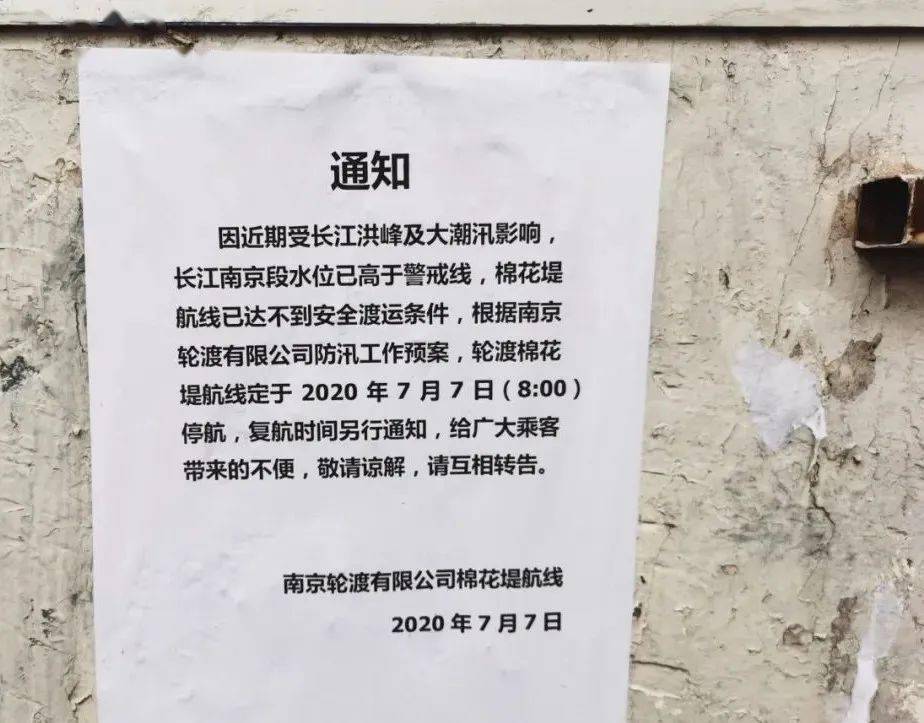 通知
因近期受长江洪峰及大潮汛影响，
长江南京段水位已高于警戒线，棉花堤
航线已达不到安全渡运条件，根据南京
轮渡有限公司防汛工作预案，轮渡棉花
堤航线定于 2020 年 7 月 7 日（8:00）
停航，复航时间另行通知，给广大乘客
带来的不便，敬请谅解，请互相转告。
南京轮渡有限公司棉花堤航线
2020 年 7 月 7 日